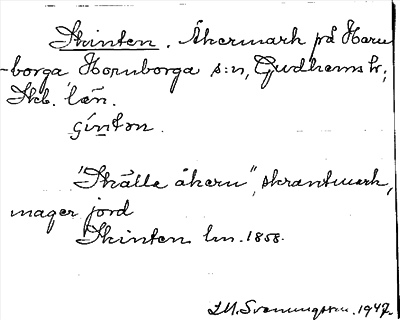 Skinten. Åkermark på Horn
-borga Hornborga s:n, Gudhems hr,
Skb. län.
ʃíntən.
"Skälle åkern", skrantmark,
mager jord
Skinten lm. 1858.
1947.